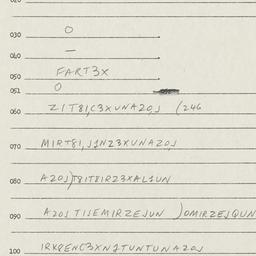 020
030 O
040 —
050 FART3X
051 O
060 ZIT8I,C3XUNA20,J (246
070 MIRT8I,J1NZ3XUNA20,J
080 A20J)T8IT8IR23XAL1UN
090 A20J TIJEMIRZEJUN )OMIRZEJQUN
100 IRKQENC3XN1TUNTUNA20J